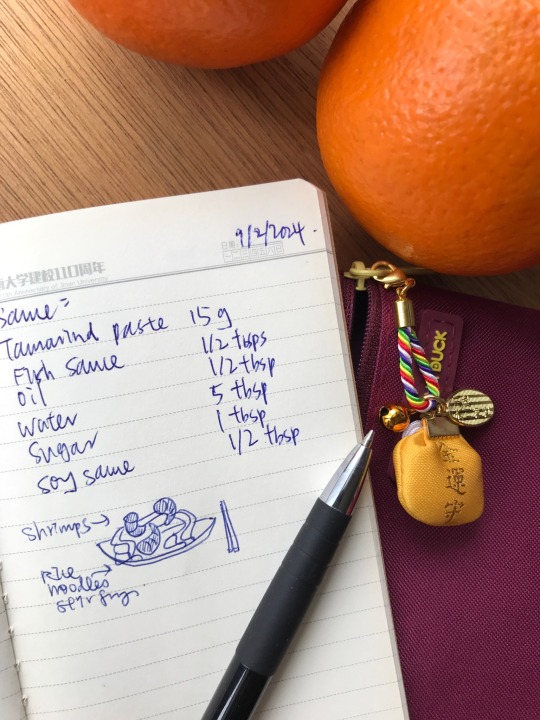 9/2/2024.
大学建校110周年
Same =
Tamarind paste 15g
Fish Sause 1/2 tbsps
Oil 1/2 tbsp
Water 5 tbsp
Sugar 1 tbsp
Soy Sause 1/2 tbsp
Shrimps
Rice
noodles
DUCK
金運守